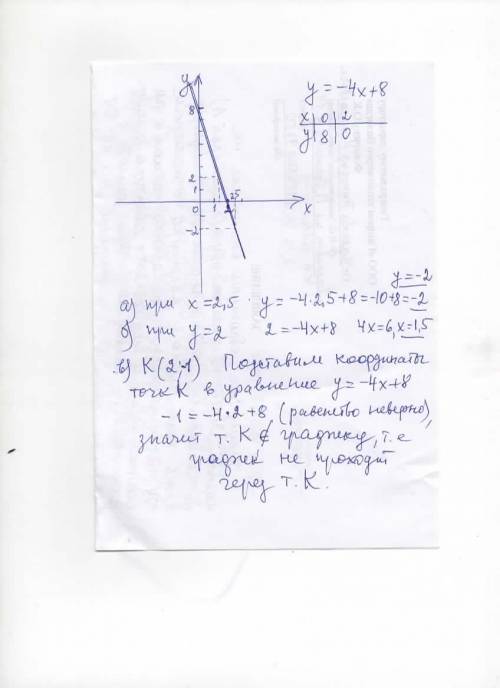 y
y = -4x+8
8
x | 0 | 2
y | 8 | 0
2
1
0
1
2
2,5
x
-2
y = -2
а) при x = 2,5 y = -4·2,5+8 = -10+8 = -2
б) при y = 2 2 = -4x+8 4x = 6, x = 1,5
в) K(2;-1) Подставим координаты
точк K в уравнение y = -4x+8
-1 = -4·2+8, (равенство неверно),
значит т. K ∉ графику, т.е
график не проходит
через т. K.